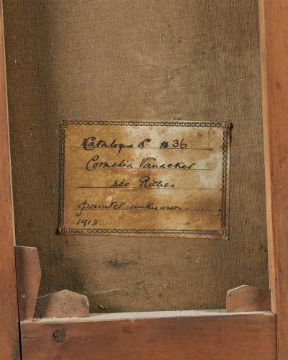 Catalogue No 36
Cornelia Vanacker
née Riches
painter unknown
1913